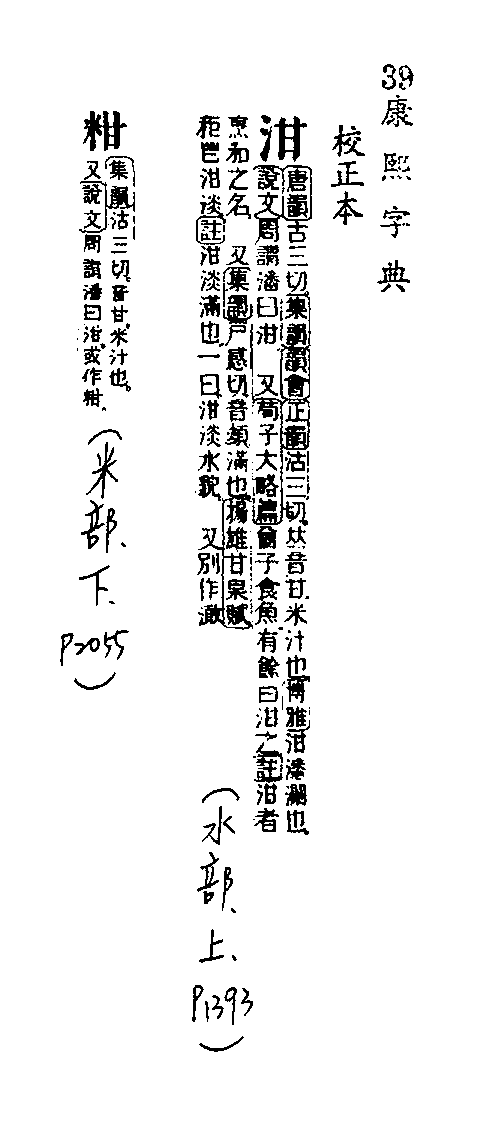 39康熙字典
校正本
泔
唐韻古三切集韻韻會正韻沽三切𠀤音甘米汁也博雅泔潘瀾也
說文周謂潘曰泔 又荀子大略篇曾子食魚有餘曰泔之註泔者
烹和之名 又集韻戸感切音頷滿也揚雄甘泉賦
秬鬯泔淡註泔淡滿也一曰泔淡水貌 又別作澉
(水部、上、P1393)
粓
集韻沽三切音甘米汁也
又說文周謂潘曰泔或作粓
(米部、下、P2055)